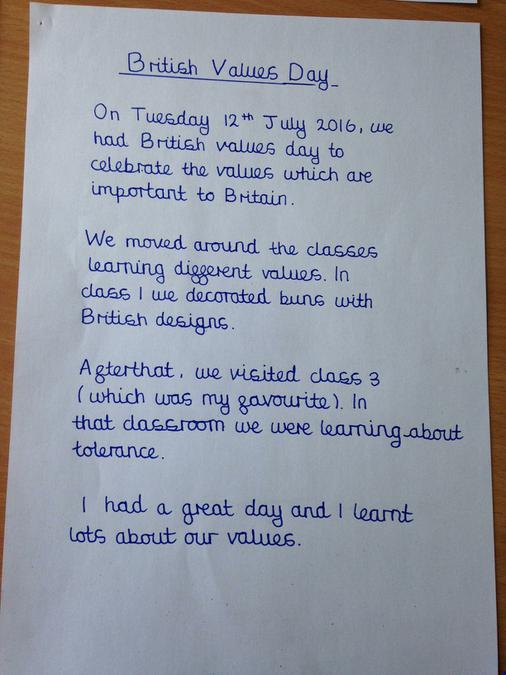 British Values Day
On Tuesday 12th July 2016, we
had British values day to
celebrate the values which are
important to Britain.
We moved around the classes
learning different values. In
class 1 we decorated buns with
British designs.
Afterthat, we visited class 3
(which was my favourite). In
that classroom we were learning about
tolerance.
I had a great day and I learnt
lots about our values.